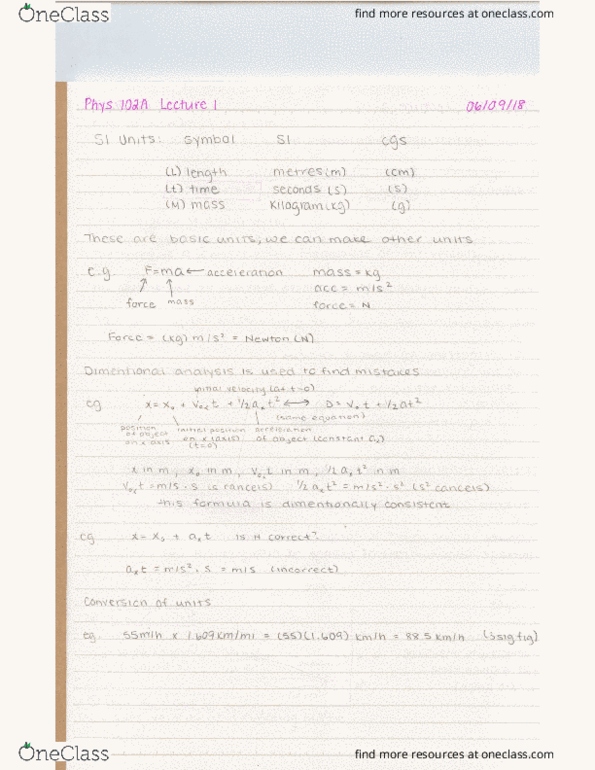 OneClass find more resources at oneclass.com
Phys 102A Lecture 1 06/09/18
SI Units: Symbol SI cgs
(L) length metres (m) (cm)
(t) time seconds (s) (s)
(M) mass Kilogram (kg) (g)
These are basic units, we can make other units
e.g. F=ma ← acceleration mass = kg
acc = m/s²
force mass force = N
Force = (kg) m/s² = Newton (N)
Dimentional analysis is used to find mistakes
initial velocity (at t=0)
eg x = x₀ + v₀ₓt + 1/2aₓt² ⟷ D = v₀t + 1/2at²
(same equation)
position of object on x axis initial position on x (axis) (t=0) acceleration of object (constant aₓ)
x in m, x₀ in m, v₀ₓt in m, 1/2aₓt² in m
v₀ₓt = m/s · s (s cancels) 1/2aₓt² = m/s² · s² (s² cancels)
this formula is dimentionally consistent
eg x = x₀ + aₓt is it correct?
aₓt = m/s² · s = m/s (incorrect)
Conversion of units
eg. 55mi/h x 1.609km/mi = (55)(1.609) km/h = 88.5 km/h (3 sig fig)
OneClass find more resources at oneclass.com